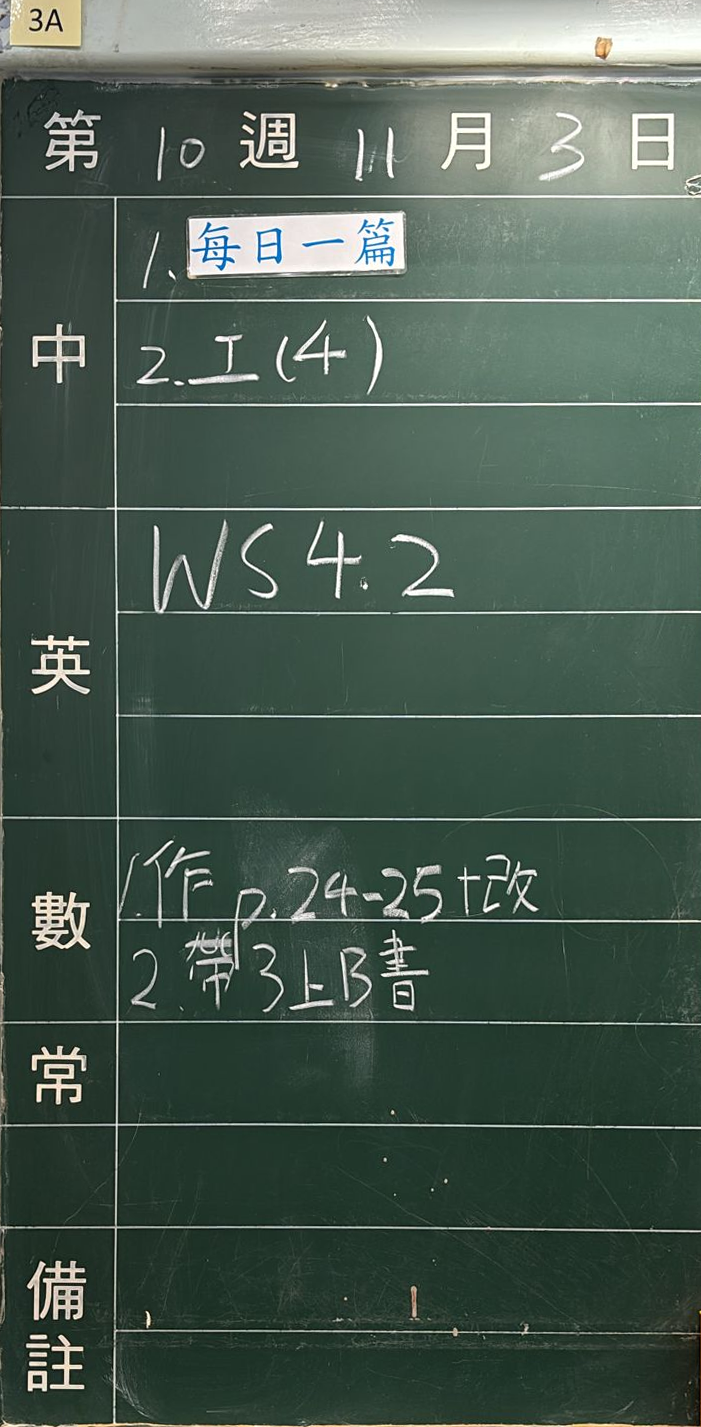 3A
第 10 週 11 月 3 日
中
1. 每日一篇
2. 工(4)
英
WS 4.2
數
1. 作 p.24-25+改
2. 帶3上B書
常
備註